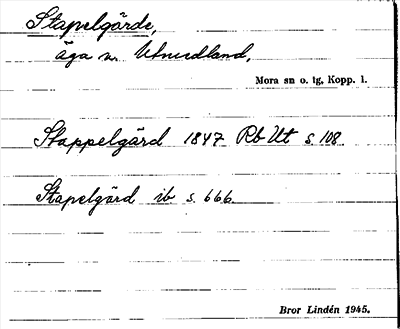 Stapelgärde,
äga n. Utmedland,
Mora sn o. tg, Kopp. l.
Stappelgärd 1847 Rb Ut s. 108.
Stapelgärd ib s. 666.
Bror Lindén 1945.